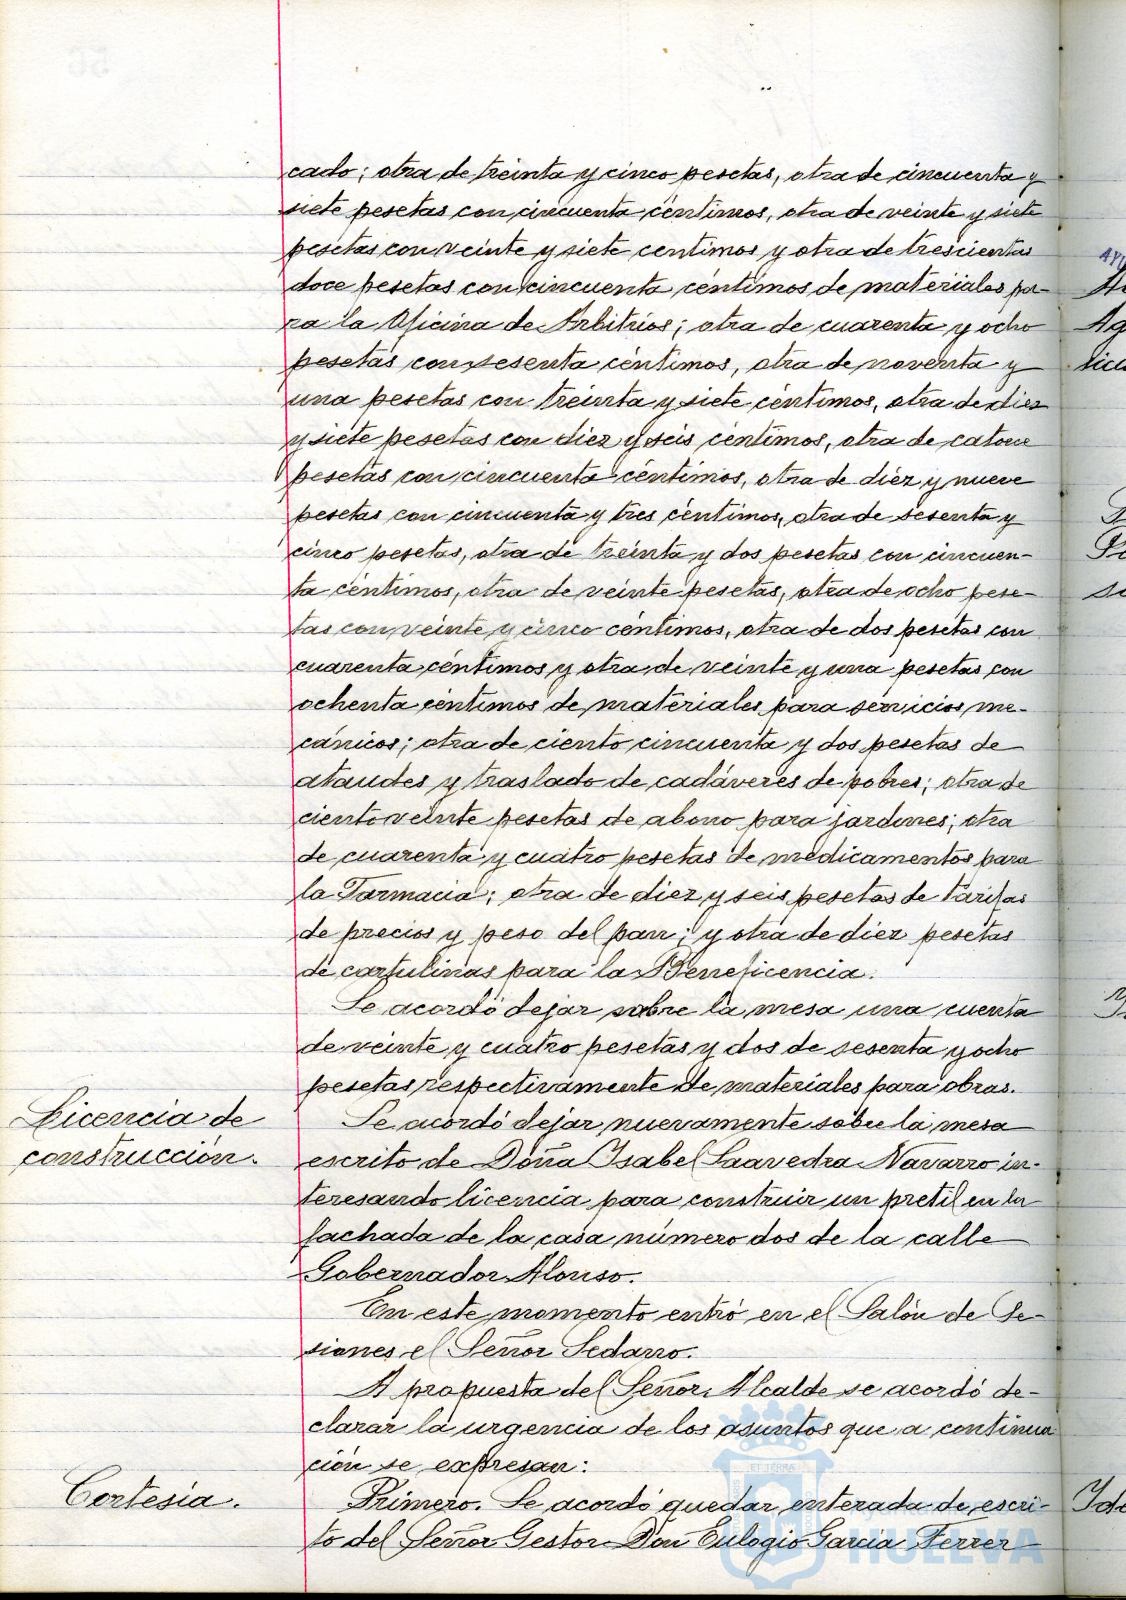 cado; otra de treinta y cinco pesetas, otra de cincuenta y
siete pesetas con cincuenta céntimos, otra de veinte y siete
pesetas con veinte y siete centimos y otra de trescientas
doce pesetas con cincuenta céntimos de materiales pa-
ra la Oficina de Arbitrios; otra de cuarenta y ocho
pesetas con sesenta céntimos, otra de noventa y
una pesetas con treinta y siete céntimos, otra de diez
y siete pesetas con diez y seis céntimos, otra de catorce
pesetas con cincuenta céntimos, otra de diez y nueve
pesetas con cincuenta y tres céntimos, otra de sesenta y
cinco pesetas, otra de treinta y dos pesetas con cincuen-
ta céntimos, otra de veinte pesetas, otra de ocho pese-
tas con veinte y cinco céntimos, otra de dos pesetas con
cuarenta céntimos y otra de veinte y una pesetas con
ochenta céntimos de materiales para servicios me-
cánicos; otra de ciento cincuenta y dos pesetas de
ataudes y traslado de cadáveres de pobres; otra de
ciento veinte pesetas de abono para jardines; otra
de cuarenta y cuatro pesetas de medicamentos para
la Farmacia; otra de diez y seis pesetas de tarifas
de precios y peso del pan; y otra de diez pesetas
de cartulinas para la Beneficencia.
Se acordó dejar sobre la mesa una cuenta
de veinte y cuatro pesetas y dos de sesenta y ocho
pesetas respectivamente de materiales para obras.
Licencia de
construcción.
Se acordó dejar nuevamente sobre la mesa
escrito de Doña Isabel Saavedra Navarro in-
teresando licencia para construir un pretil en la
fachada de la casa número dos de la calle
Gobernador Alonso.
En este momento entró en el Salón de Se-
siones el Señor Sedano.
A propuesta del Señor Alcalde se acordó de-
clarar la urgencia de los asuntos que a continua
ción se expresan:
Cortesía.
Primero. Se acordó quedar enterada de escri-
to del Señor Gestor Don Eulogio García Ferrer
HUELVA